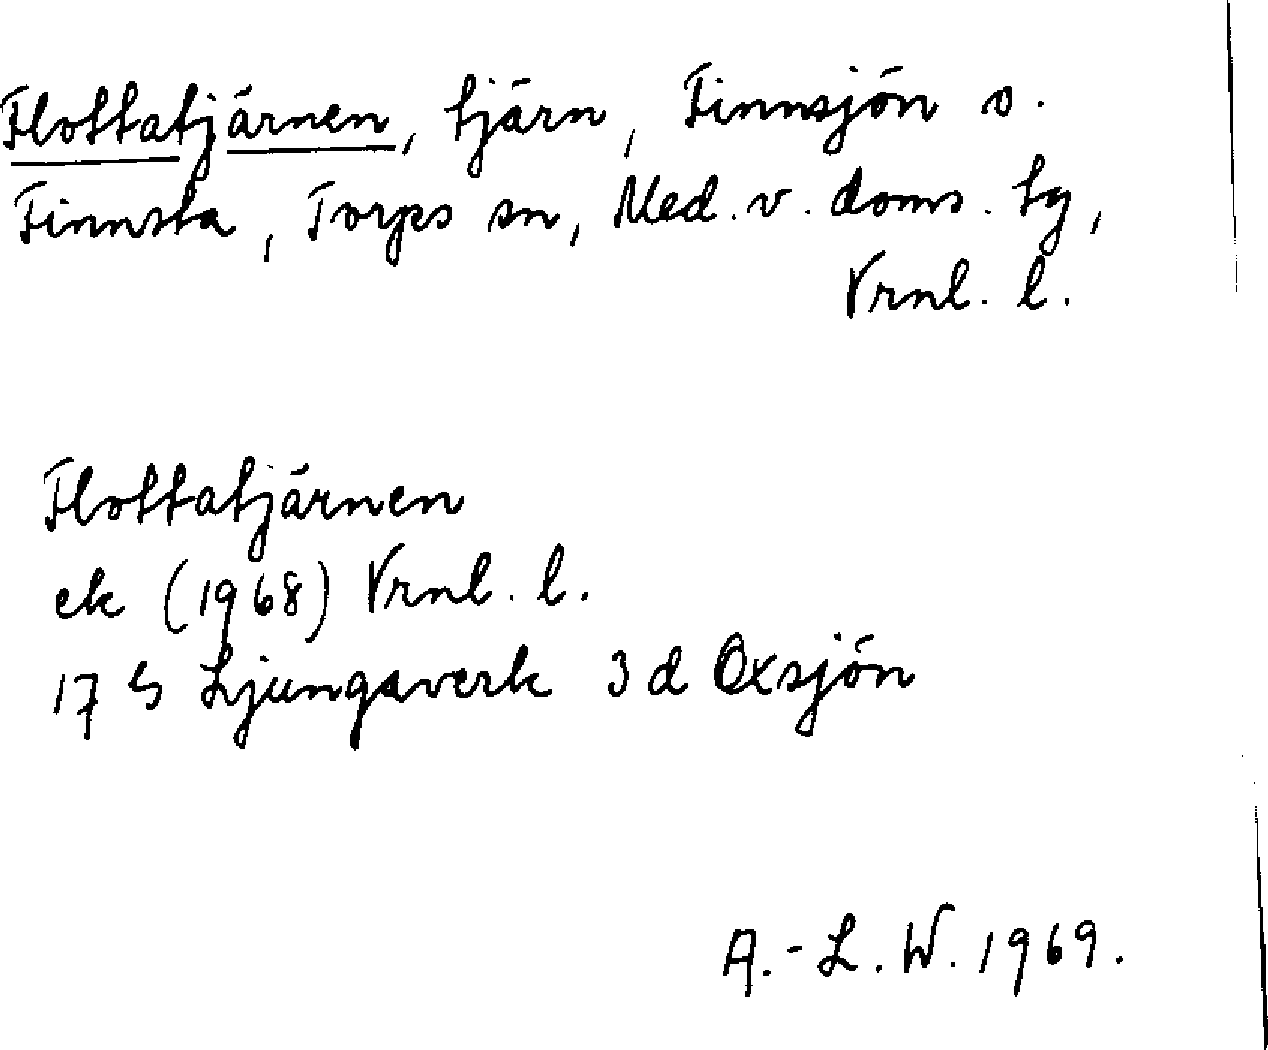 Flottatjärnen, tjärn, Finnsjön o.
Finnsta, Torps sn, Med. v. doms. tg,
Vrnl. l.
Flottatjärnen
ek (1968) Vrnl. l.
17 G Ljungaverk 3 d Oxsjön
A.-L. W. 1969.